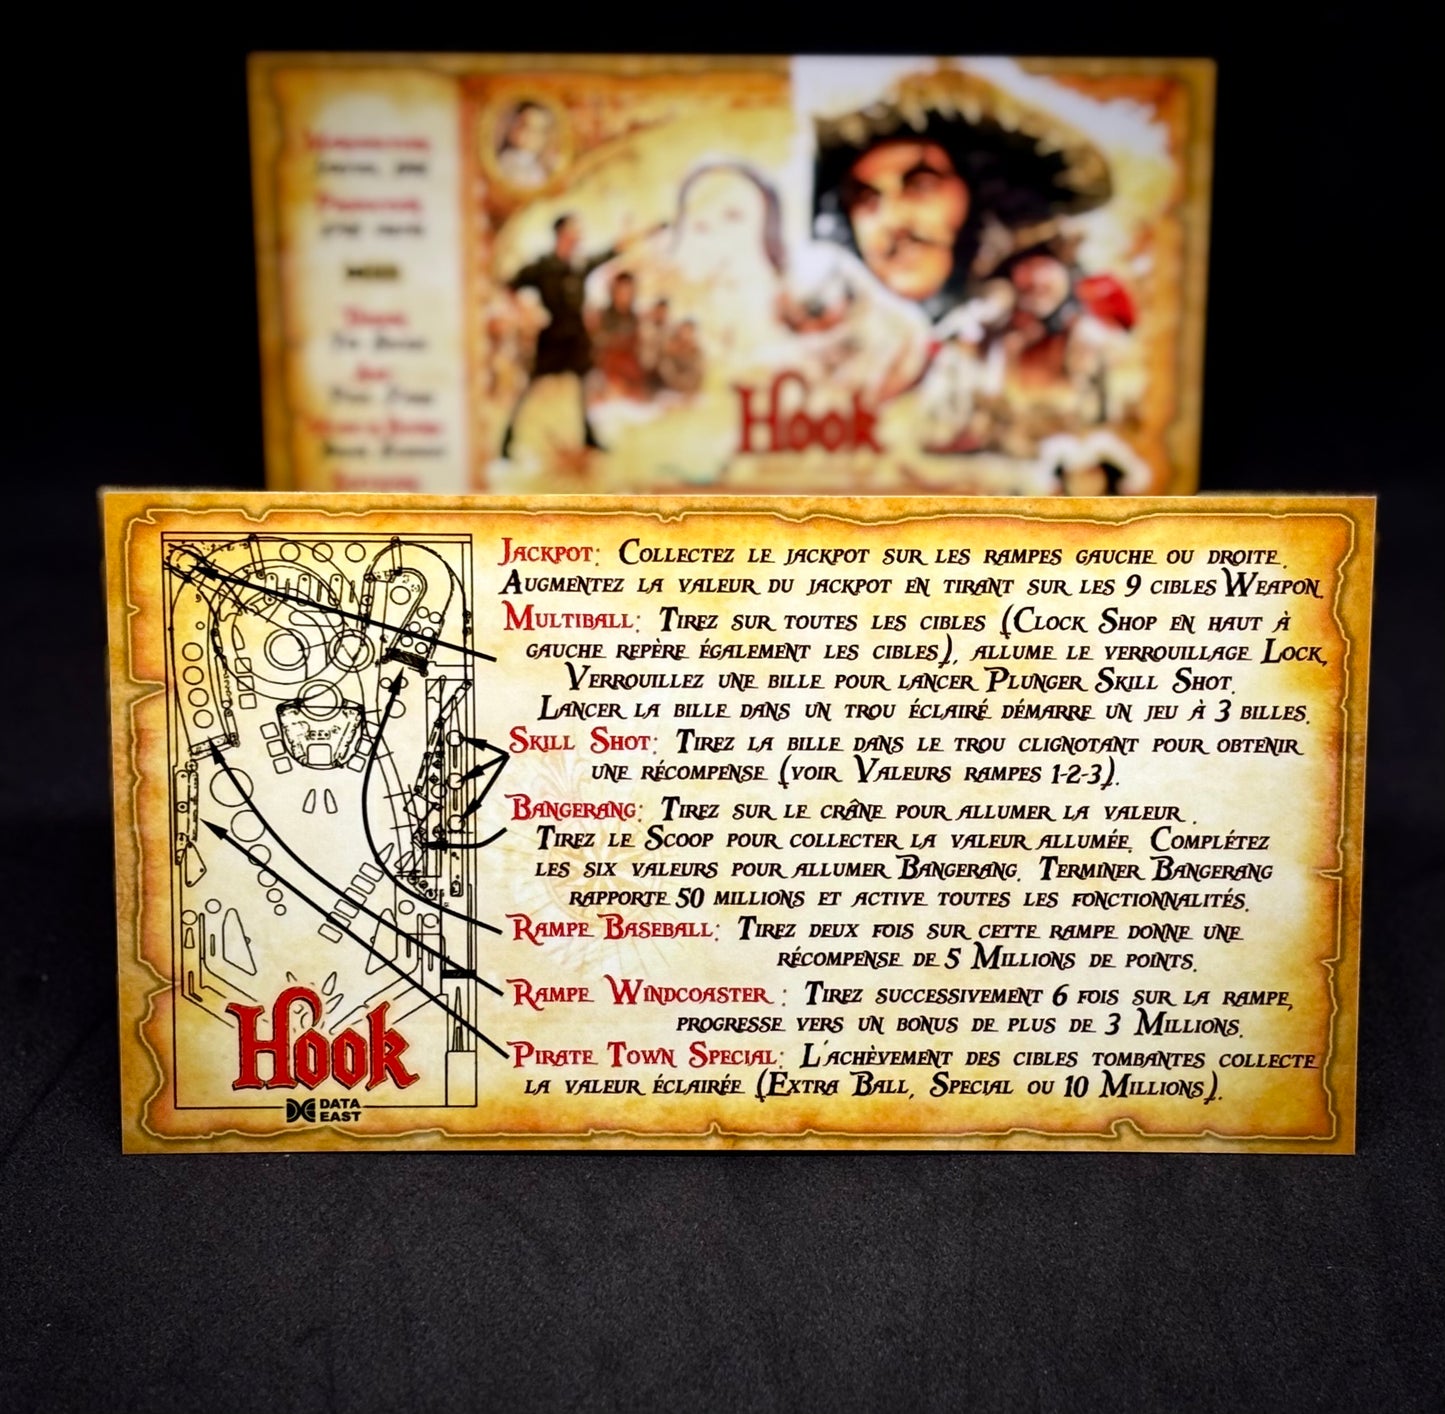 Hook
Jackpot: Collectez le jackpot sur les rampes gauche ou droite.
Augmentez la valeur du jackpot en tirant sur les 9 cibles Weapon.
Multiball: Tirez sur toutes les cibles (Clock Shop en haut à
gauche repère également les cibles), allume le verrouillage Lock,
Verrouillez une bille pour lancer Plunger Skill Shot.
Lancer la bille dans un trou éclairé démarre un jeu à 3 billes.
Skill Shot: Tirez la bille dans le trou clignotant pour obtenir
une récompense (voir Valeurs rampes 1-2-3).
Bangerang: Tirez sur le crâne pour allumer la valeur .
Tirez le Scoop pour collecter la valeur allumée. Complétez
les six valeurs pour allumer Bangerang. Terminer Bangerang
rapporte 50 millions et active toutes les fonctionnalités.
Rampe Baseball: Tirez deux fois sur cette rampe donne une
récompense de 5 Millions de points.
Rampe Windcoaster : Tirez successivement 6 fois sur la rampe,
progresse vers un bonus de plus de 3 Millions.
Pirate Town Special: L'achèvement des cibles tombantes collecte
la valeur éclairée (Extra Ball, Special ou 10 Millions).
Hook
DATA
EAST